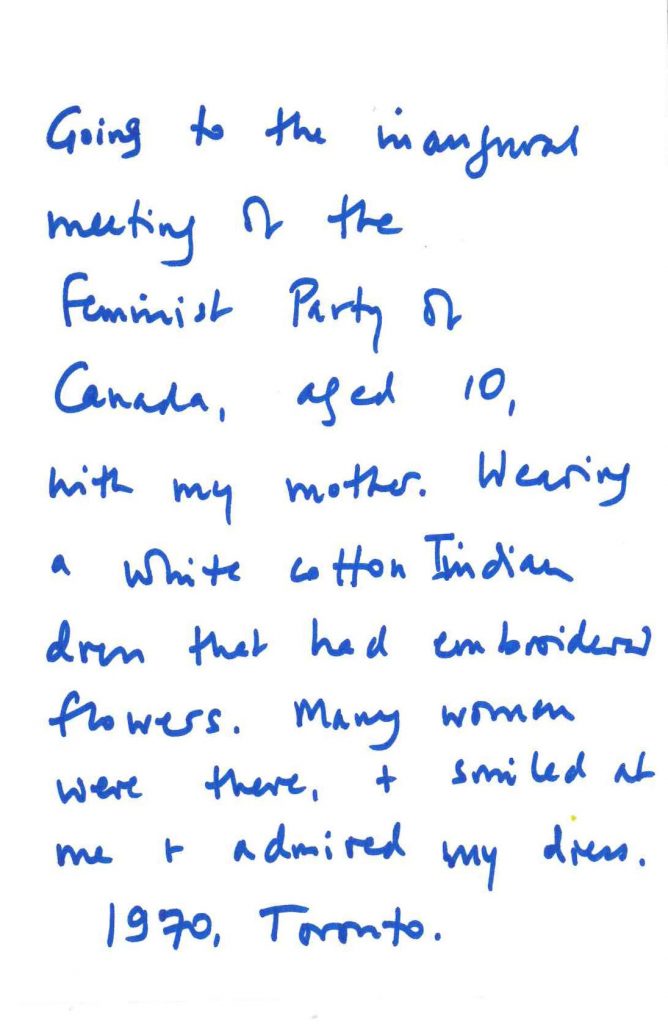 Going to the inaugural
meeting of the
Feminist Party of
Canada, aged 10,
with my mother. Wearing
a white cotton Indian
dress that had embroidered
flowers. Many women
were there, + smiled at
me + admired my dress.
1970, Toronto.